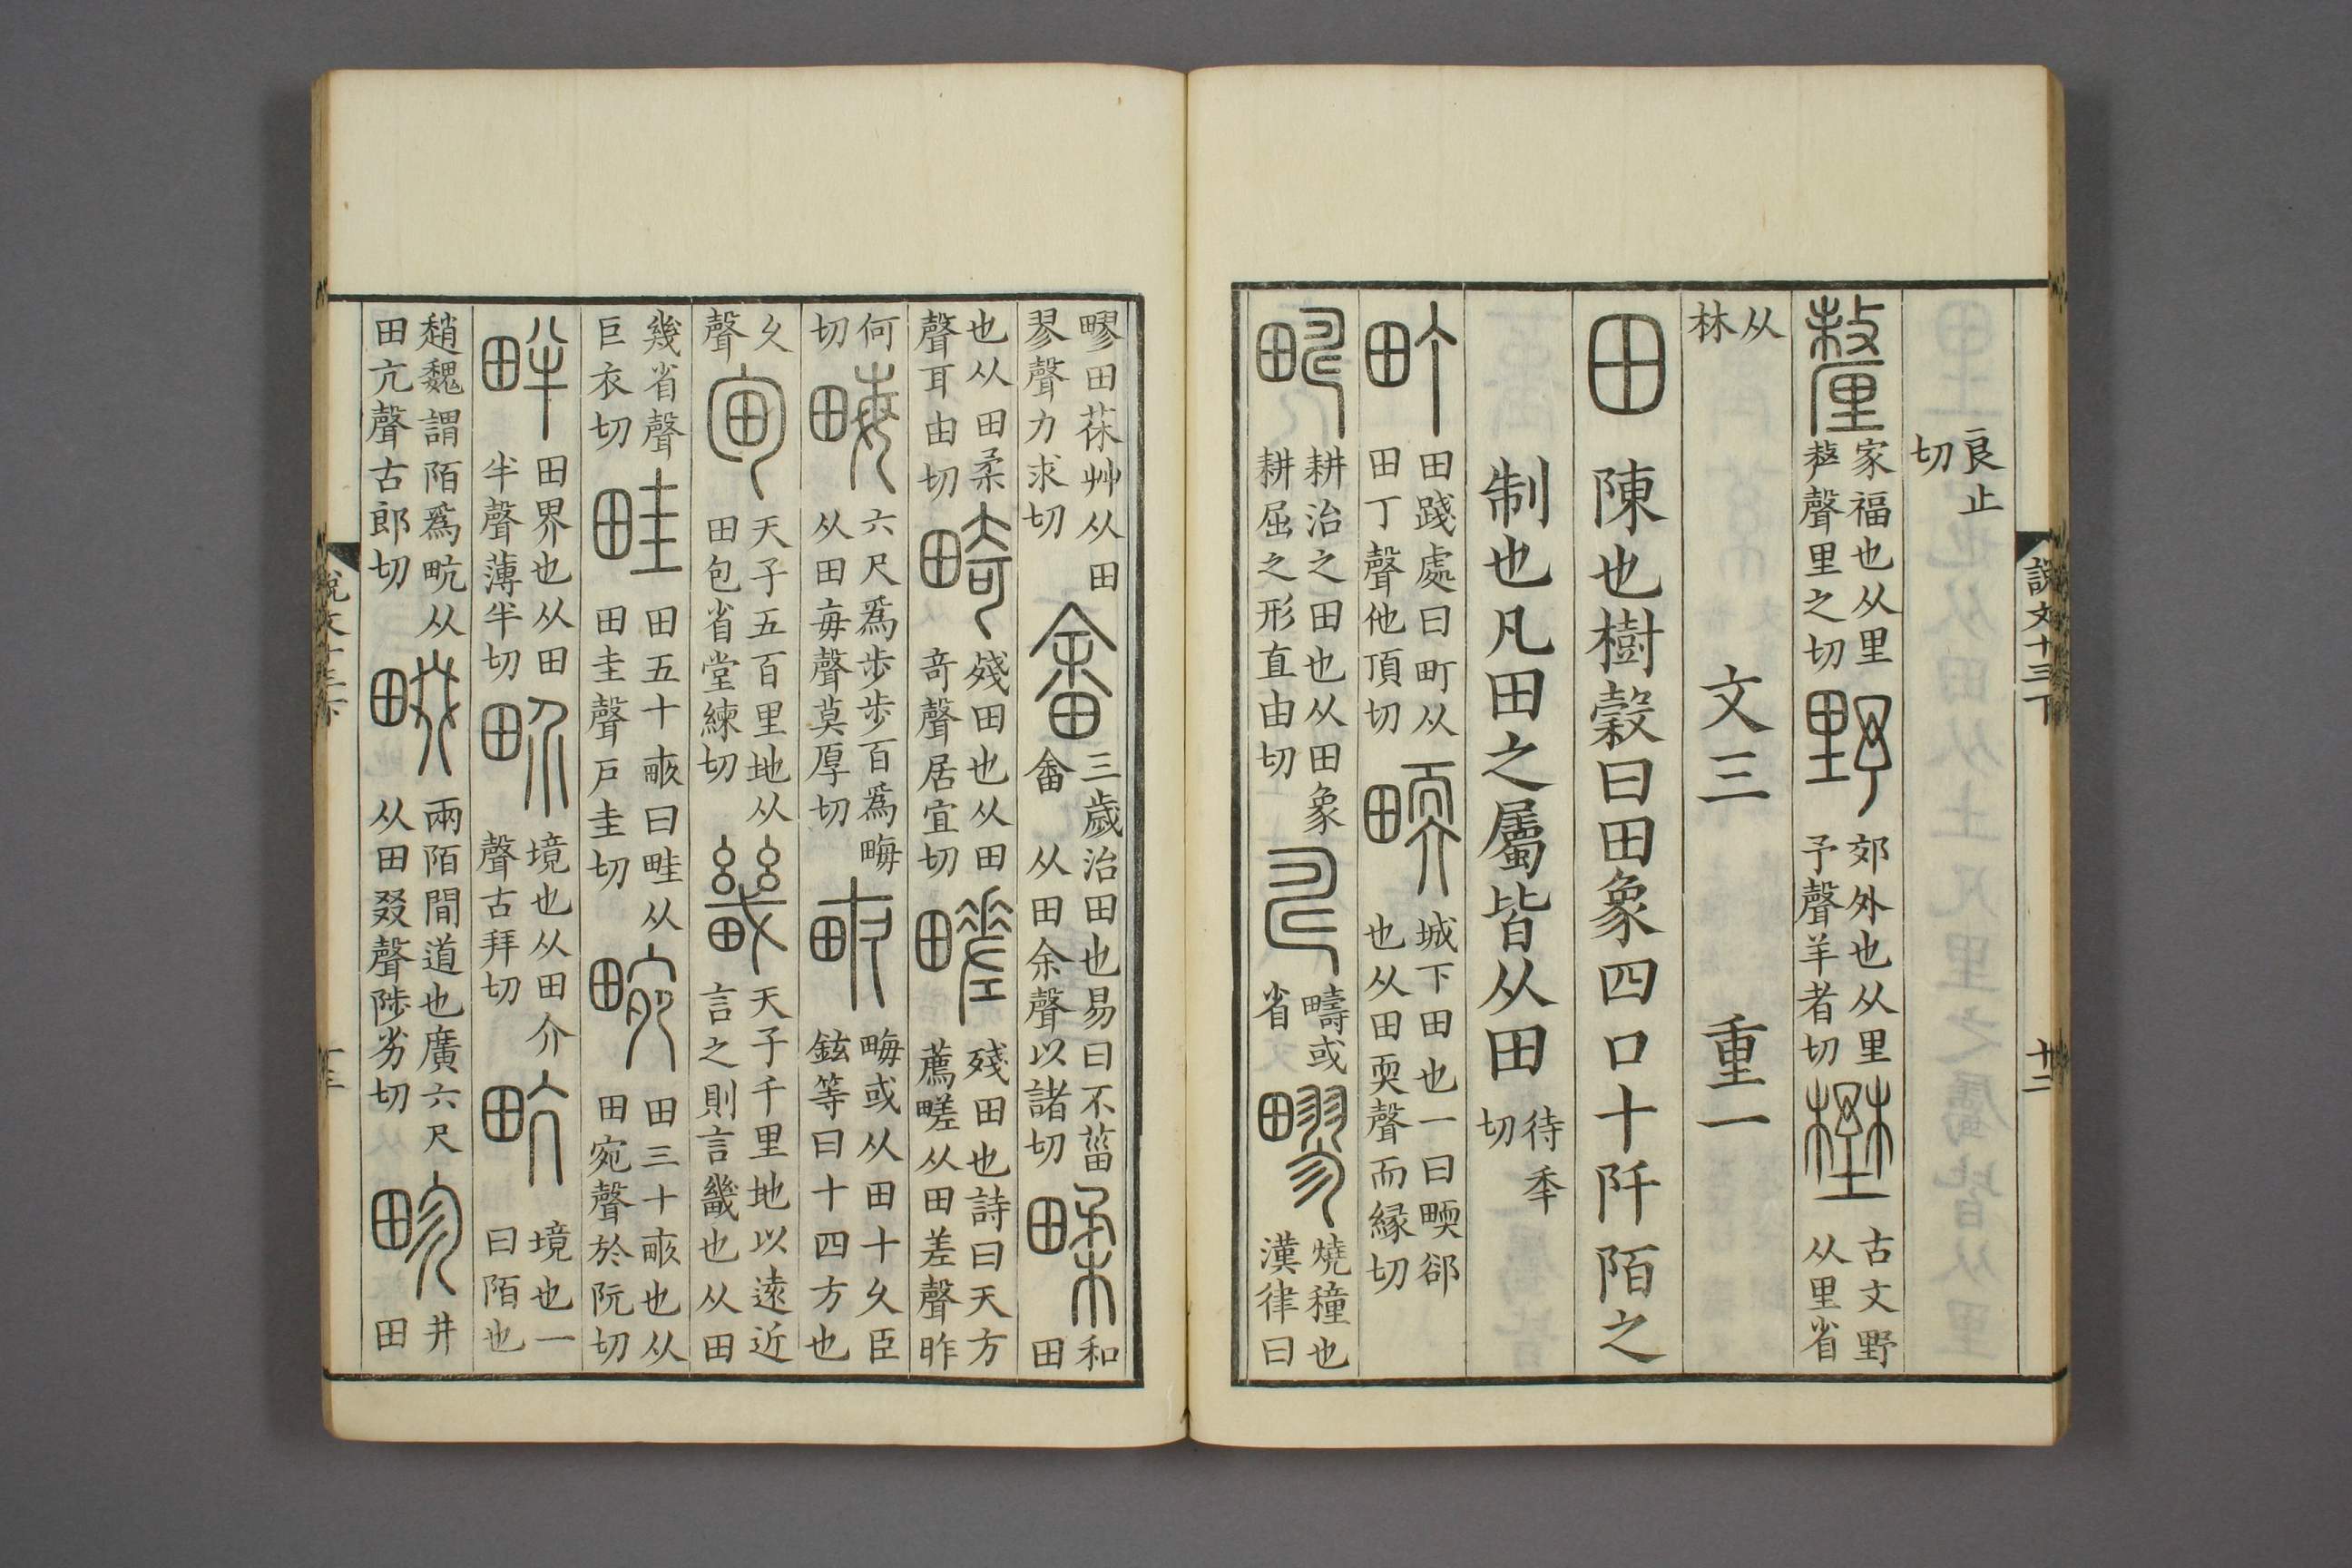 說文十三下 十二
良止切
釐家福也从里𠩺聲里之切野郊外也从里予聲羊者切壄古文野从里省
从林 文三 重一
田 陳也樹穀曰田象四口十阡陌之
制也凡田之屬皆从田待秊切
町田踐處曰町从田丁聲他頂切𤲬城下田也一曰𤲬郤也从田耎聲而緣切
疇耕治之田也从田象耕屈之形直由切𠃬疇或省疁燒穜也漢律曰
疁田茠艸从田翏聲力求切畬三歲治田也易曰不葘畬从田余聲以諸切䰆和田
也从田柔聲耳由切畸殘田也从田奇聲居宜切𤳱殘田也詩曰天方薦𤳱从田差聲昨
何切畮六尺爲步步百爲畮从田每聲莫厚切畞畮或从田十久臣鉉等曰十四方也
久聲甸天子五百里地从田包省堂練切畿天子千里地以遠近言之則言畿也从田
幾省聲巨衣切畦田五十畞曰畦从田圭聲戸圭切畹田三十畞也从田宛聲於阮切
畔田界也从田半聲薄半切畍境也从田介聲古拜切㽘境也一曰陌也
趙魏謂陌爲㽘从田亢聲古郎切畷兩陌閒道也廣六尺从田叕聲陟劣切畛井田
說文十三下 十三